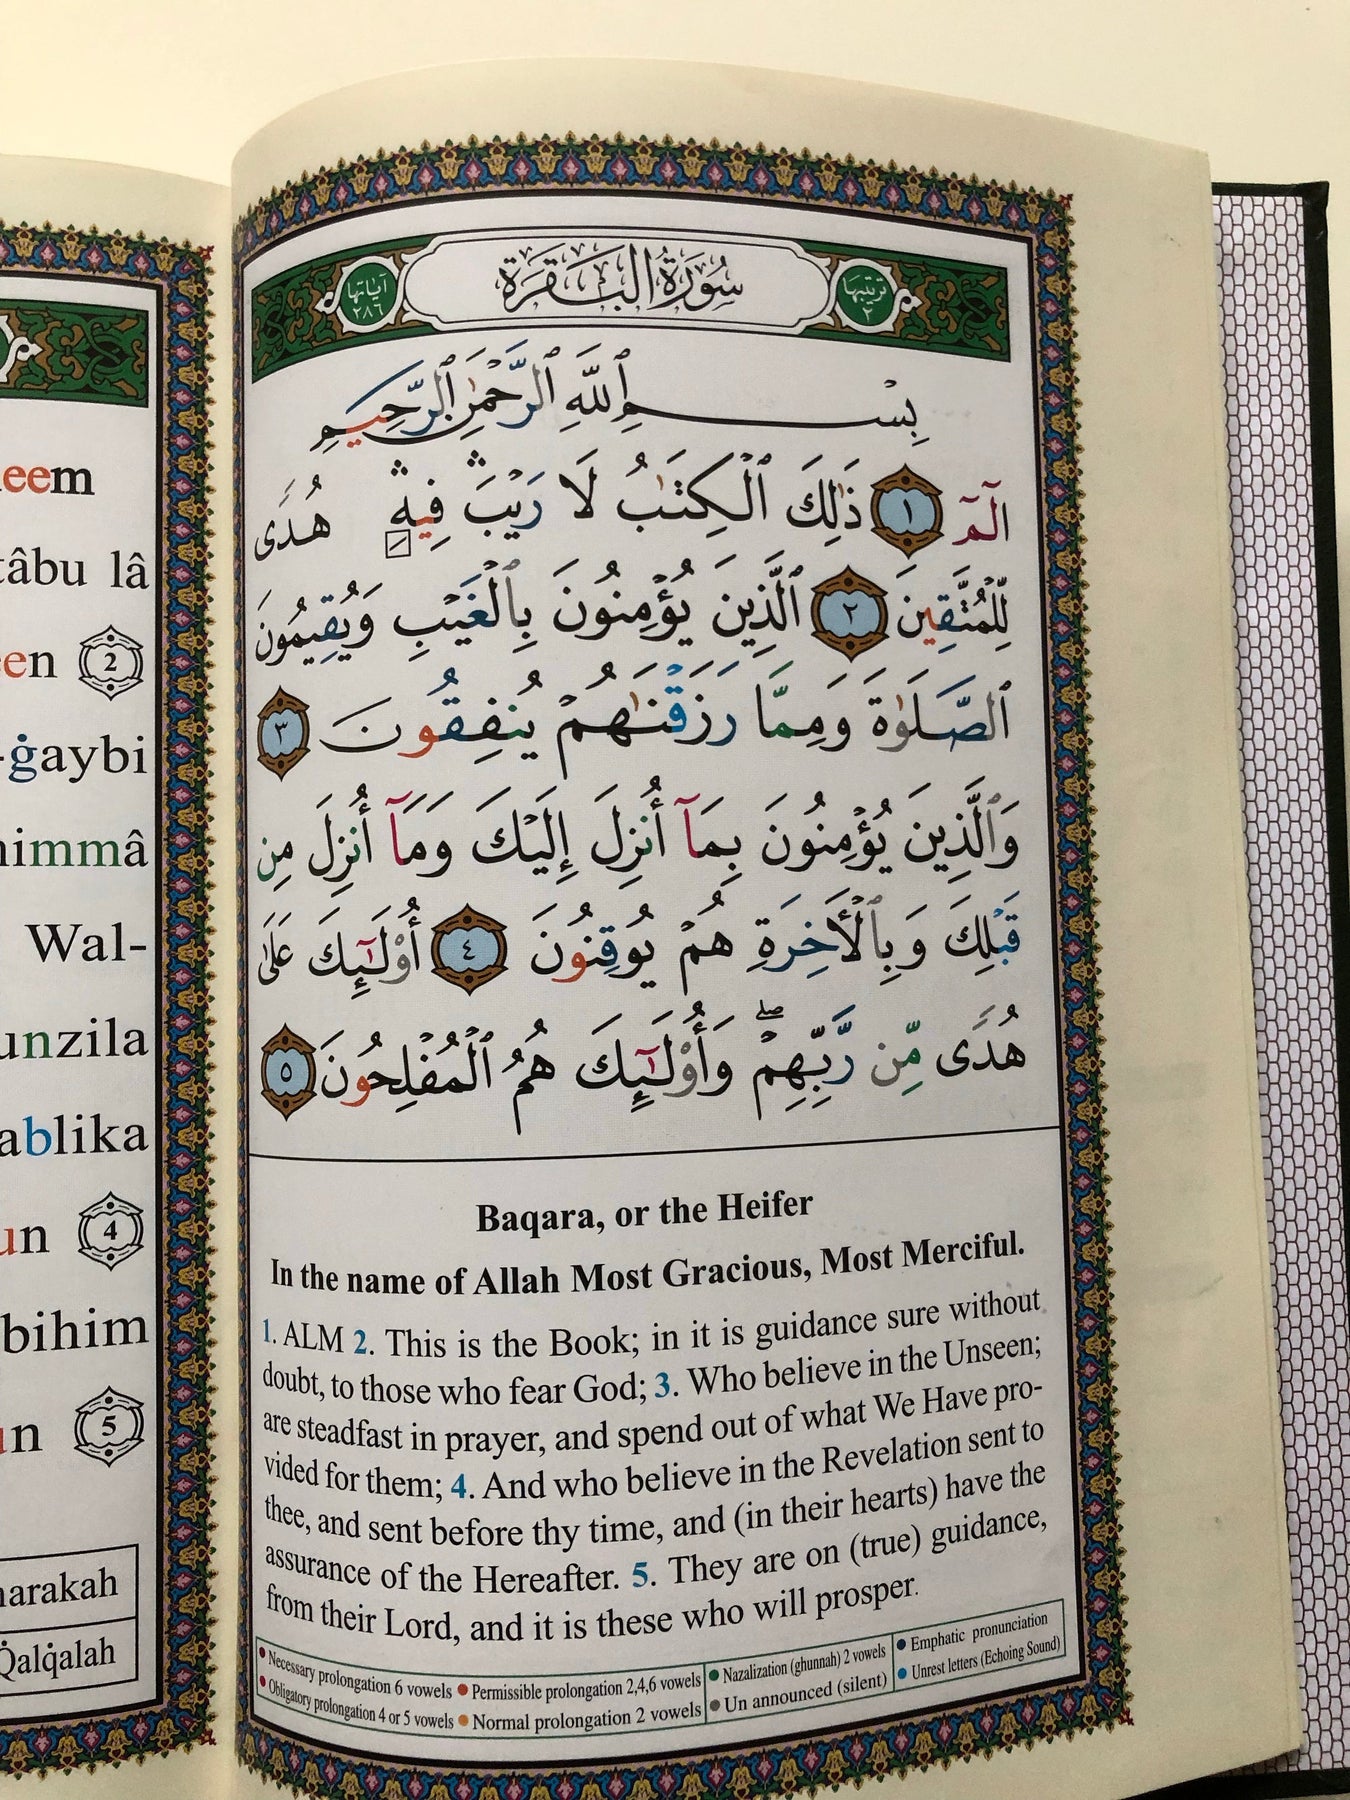 eem
tâbu lâ
een 2
-ġaybi
nimmâ
Wal-
unzila
ablika
un 4
bihim
un 5
arakah
Qalqalah
ترتيبها ٢ سُورَةُ البَقَرَةِ آياتها ٢٨٦
بِسْمِ ٱللَّهِ ٱلرَّحْمَٰنِ ٱلرَّحِيمِ
الٓمٓ ١ ذَٰلِكَ ٱلْكِتَٰبُ لَا رَيْبَ ۛ فِيهِ ۛ هُدًى
لِّلْمُتَّقِينَ ٢ ٱلَّذِينَ يُؤْمِنُونَ بِٱلْغَيْبِ وَيُقِيمُونَ
ٱلصَّلَوٰةَ وَمِمَّا رَزَقْنَٰهُمْ يُنفِقُونَ ٣
وَٱلَّذِينَ يُؤْمِنُونَ بِمَآ أُنزِلَ إِلَيْكَ وَمَآ أُنزِلَ مِن
قَبْلِكَ وَبِٱلْأَخِرَةِ هُمْ يُوقِنُونَ ٤ أُوْلَٰٓئِكَ عَلَىٰ
هُدًى مِّن رَّبِّهِمْ ۖ وَأُوْلَٰٓئِكَ هُمُ ٱلْمُفْلِحُونَ ٥
Baqara, or the Heifer
In the name of Allah Most Gracious, Most Merciful.
1. ALM 2. This is the Book; in it is guidance sure without
doubt, to those who fear God; 3. Who believe in the Unseen;
are steadfast in prayer, and spend out of what We Have pro-
vided for them; 4. And who believe in the Revelation sent to
thee, and sent before thy time, and (in their hearts) have the
assurance of the Hereafter. 5. They are on (true) guidance,
from their Lord, and it is these who will prosper.
Necessary prolongation 6 vowels Permissible prolongation 2,4,6 vowels Nazalization (ghunnah) 2 vowels Emphatic pronunciation
Obligatory prolongation 4 or 5 vowels Normal prolongation 2 vowels Un announced (silent) Unrest letters (Echoing Sound)